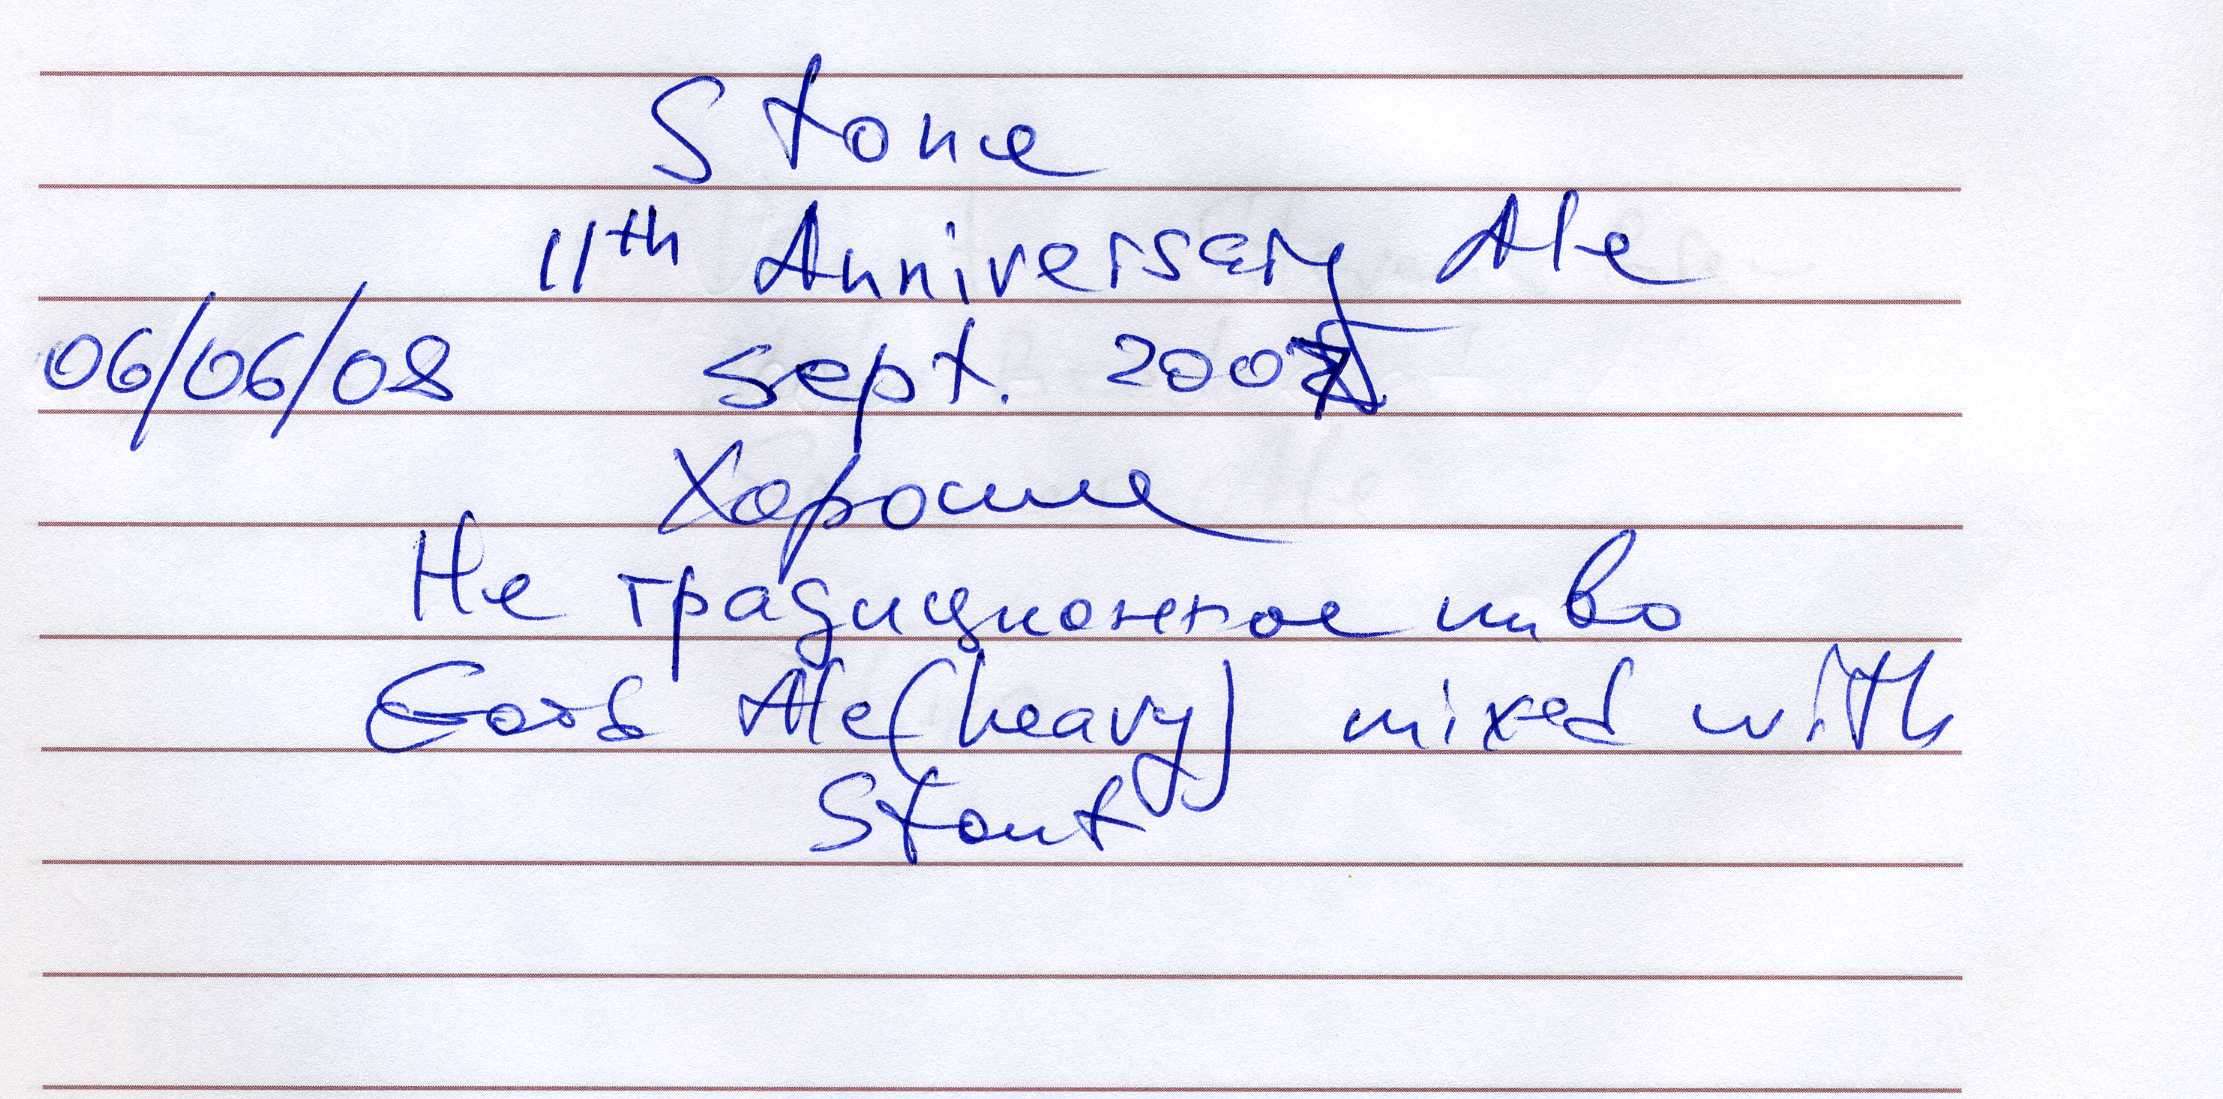 Stone
11th Anniversary Ale
06/06/08 Sept. 2007
Хорошие
Не традиционное пиво
Ale (heavy) mixed with
Stout